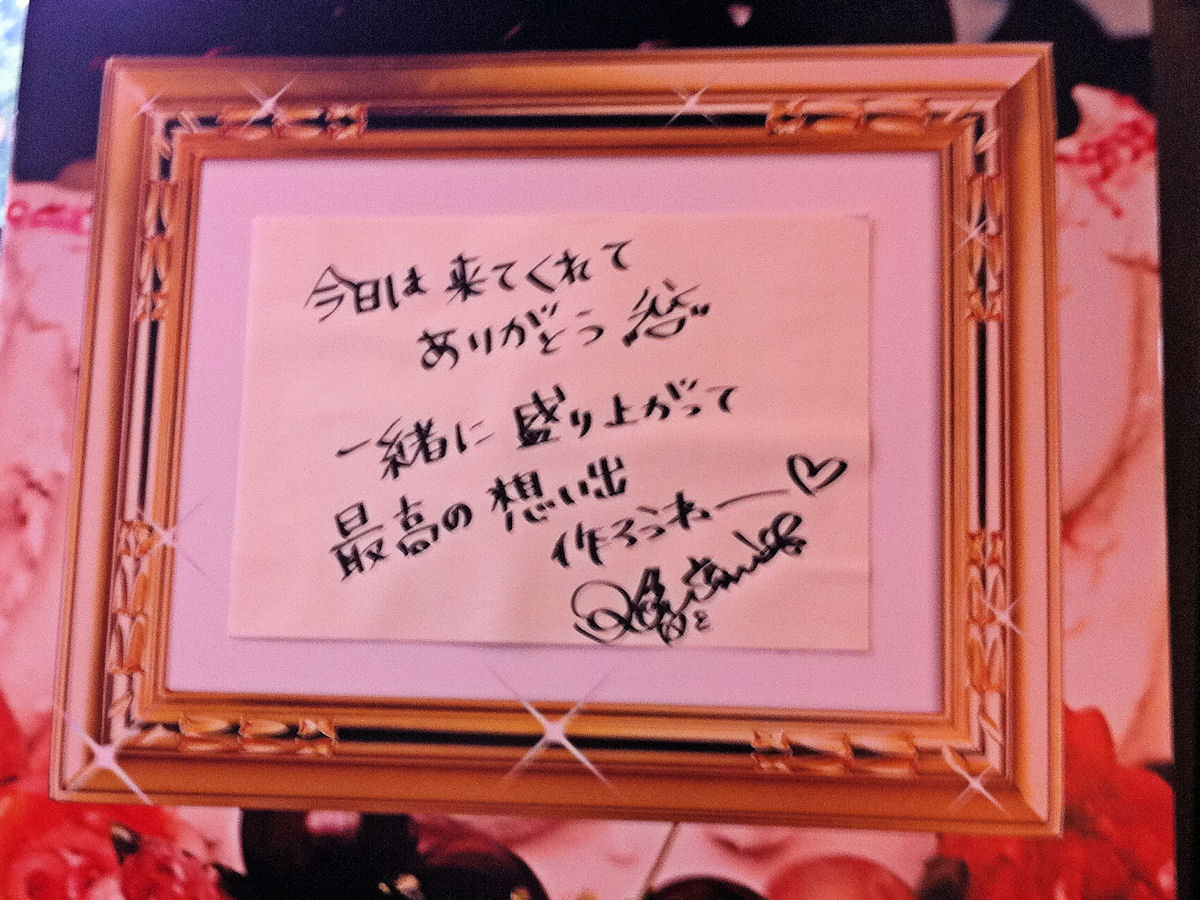 今日は来てくれて
ありがとう
一緒に盛り上がって
最高の想い出
作ろうねー♡